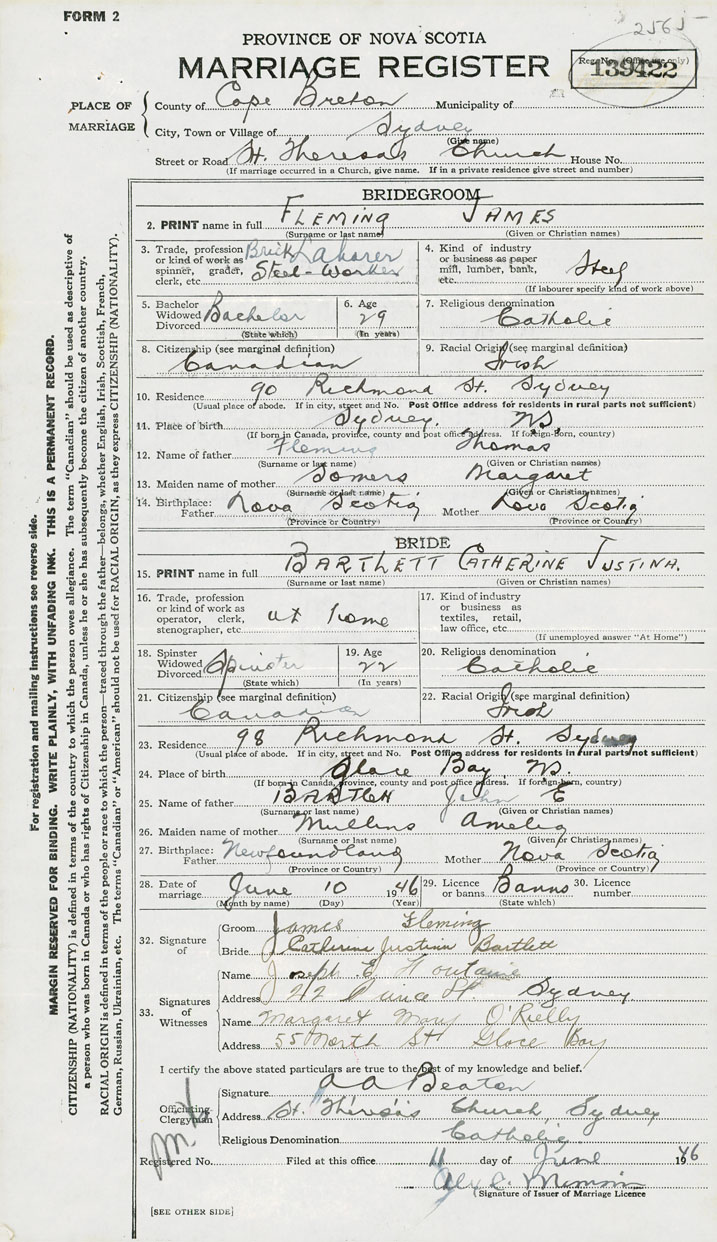 FORM 2
2565
PROVINCE OF NOVA SCOTIA
MARRIAGE REGISTER
Reg. No. (Office use only)
139422
PLACE OF MARRIAGE
County of Cape Breton Municipality of
City, Town or Village of Sydney
(Give name)
Street or Road St. Theresa's Church House No.
(If marriage occurred in a Church, give name. If in a private residence give street and number)
BRIDEGROOM
2. PRINT name in full FLEMING JAMES
(Surname or last name) (Given or Christian names)
3. Trade, profession or kind of work as spinner, grader, clerk, etc. Brick Laborer Steel-Worker
4. Kind of industry or business as paper mill, lumber, bank, etc. Steel
(If labourer specify kind of work above)
5. Bachelor Widowed Divorced Bachelor
(State which)
6. Age 29
(In years)
7. Religious denomination Catholic
8. Citizenship (see marginal definition) Canadian
9. Racial Origin (see marginal definition) Irish
10. Residence 90 Richmond St. Sydney
(Usual place of abode. If in city, street and No. Post Office address for residents in rural parts not sufficient)
11. Place of birth Sydney. NS.
(If born in Canada, province, county and post office address. If foreign-born, country)
12. Name of father Fleming Thomas
(Surname or last name) (Given or Christian names)
13. Maiden name of mother Somers Margaret
(Surname or last name) (Given or Christian names)
14. Birthplace: Father Nova Scotia Mother Nova Scotia
(Province or Country) (Province or Country)
BRIDE
15. PRINT name in full BARTLETT CATHERINE JUSTINA.
(Surname or last name) (Given or Christian names)
16. Trade, profession or kind of work as operator, clerk, stenographer, etc. at home
17. Kind of industry or business as textiles, retail, law office, etc.
(If unemployed answer "At Home")
18. Spinster Widowed Divorced Spinster
(State which)
19. Age 22
(In years)
20. Religious denomination Catholic
21. Citizenship (see marginal definition) Canadian
22. Racial Origin (see marginal definition) Irish
23. Residence 98 Richmond St. Sydney
(Usual place of abode. If in city, street and No. Post Office address for residents in rural parts not sufficient)
24. Place of birth Glace Bay, NS.
(If born in Canada, province, county and post office address. If foreign-born, country)
25. Name of father John E
(Surname or last name) (Given or Christian names)
26. Maiden name of mother Mullins Amelia
(Surname or last name) (Given or Christian names)
27. Birthplace: Father Newfoundland Mother Nova Scotia
(Province or Country) (Province or Country)
28. Date of marriage June 10 1946
(Month by name) (Day) (Year)
29. Licence or banns Banns
(State which)
30. Licence number
32. Signature of
Groom James Fleming
Bride Catherine Justina Bartlett
33. Signatures of Witnesses
Name Joseph E.
Address 212 St. Sydney
Name Margaret Mary O'Rielly
Address 55 North St Glace Bay
I certify the above stated particulars are true to the best of my knowledge and belief.
Officiating Clergyman
Signature A A Beaton
Address St. Theresa's Church, Sydney
Religious Denomination Catholic
Registered No. Filed at this office 11 day of June 1946
(Signature of Issuer of Marriage Licence
[SEE OTHER SIDE]
For registration and mailing instructions see reverse side.
MARGIN RESERVED FOR BINDING. WRITE PLAINLY, WITH UNFADING INK. THIS IS A PERMANENT RECORD.
CITIZENSHIP (NATIONALITY) is defined in terms of the country to which the person owes allegiance. The term "Canadian" should be used as descriptive of
a person who was born in Canada or who has rights of Citizenship in Canada, unless he or she has subsequently become the citizen of another country.
RACIAL ORIGIN is defined in terms of the people or race to which the person—traced through the father—belongs, whether English, Irish, Scottish, French,
German, Russian, Ukrainian, etc. The terms "Canadian" or "American" should not be used for RACIAL ORIGIN, as they express CITIZENSHIP (NATIONALITY).